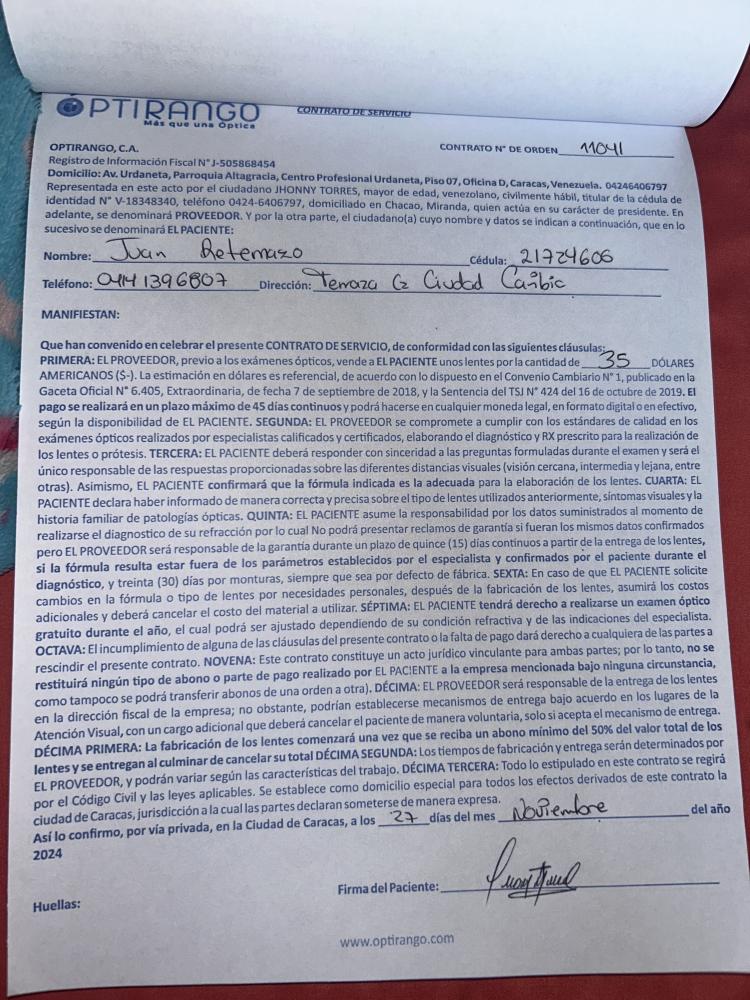 OPTIRANGO
Más que una Óptica
CONTRATO DE SERVICIO
OPTIRANGO, C.A.
CONTRATO N° DE ORDEN 11041
Registro de Información Fiscal N° J-505868454
Domicilio: Av. Urdaneta, Parroquia Altagracia, Centro Profesional Urdaneta, Piso 07, Oficina D, Caracas, Venezuela. 04246406797
Representada en este acto por el ciudadano JHONNY TORRES, mayor de edad, venezolano, civilmente hábil, titular de la cédula de
identidad N° V-18348340, teléfono 0424-6406797, domiciliado en Chacao, Miranda, quien actúa en su carácter de presidente. En
adelante, se denominará PROVEEDOR. Y por la otra parte, el ciudadano(a) cuyo nombre y datos se indican a continuación, que en lo
sucesivo se denominará EL PACIENTE:
Nombre: Juan Cédula: 21724606
Teléfono: 0414 1396807 Dirección: Terraza Ciudad
MANIFIESTAN:
Que han convenido en celebrar el presente CONTRATO DE SERVICIO, de conformidad con las siguientes cláusulas:
PRIMERA: EL PROVEEDOR, previo a los exámenes ópticos, vende a EL PACIENTE unos lentes por la cantidad de 35 DÓLARES
AMERICANOS ($-). La estimación en dólares es referencial, de acuerdo con lo dispuesto en el Convenio Cambiario N° 1, publicado en la
Gaceta Oficial N° 6.405, Extraordinaria, de fecha 7 de septiembre de 2018, y la Sentencia del TSJ N° 424 del 16 de octubre de 2019. El
pago se realizará en un plazo máximo de 45 días continuos y podrá hacerse en cualquier moneda legal, en formato digital o en efectivo,
según la disponibilidad de EL PACIENTE. SEGUNDA: EL PROVEEDOR se compromete a cumplir con los estándares de calidad en los
exámenes ópticos realizados por especialistas calificados y certificados, elaborando el diagnóstico y RX prescrito para la realización de
los lentes o prótesis. TERCERA: EL PACIENTE deberá responder con sinceridad a las preguntas formuladas durante el examen y será el
único responsable de las respuestas proporcionadas sobre las diferentes distancias visuales (visión cercana, intermedia y lejana, entre
otras). Asimismo, EL PACIENTE confirmará que la fórmula indicada es la adecuada para la elaboración de los lentes. CUARTA: EL
PACIENTE declara haber informado de manera correcta y precisa sobre el tipo de lentes utilizados anteriormente, síntomas visuales y la
historia familiar de patologías ópticas. QUINTA: EL PACIENTE asume la responsabilidad por los datos suministrados al momento de
realizarse el diagnostico de su refracción por lo cual No podrá presentar reclamos de garantía si fueran los mismos datos confirmados
pero EL PROVEEDOR será responsable de la garantía durante un plazo de quince (15) días continuos a partir de la entrega de los lentes,
si la fórmula resulta estar fuera de los parámetros establecidos por el especialista y confirmados por el paciente durante el
diagnóstico, y treinta (30) días por monturas, siempre que sea por defecto de fábrica. SEXTA: En caso de que EL PACIENTE solicite
cambios en la fórmula o tipo de lentes por necesidades personales, después de la fabricación de los lentes, asumirá los costos
adicionales y deberá cancelar el costo del material a utilizar. SÉPTIMA: EL PACIENTE tendrá derecho a realizarse un examen óptico
gratuito durante el año, el cual podrá ser ajustado dependiendo de su condición refractiva y de las indicaciones del especialista.
OCTAVA: El incumplimiento de alguna de las cláusulas del presente contrato o la falta de pago dará derecho a cualquiera de las partes a
rescindir el presente contrato. NOVENA: Este contrato constituye un acto jurídico vinculante para ambas partes; por lo tanto, no se
restituirá ningún tipo de abono o parte de pago realizado por EL PACIENTE a la empresa mencionada bajo ninguna circunstancia,
como tampoco se podrá transferir abonos de una orden a otra). DÉCIMA: EL PROVEEDOR será responsable de la entrega de los lentes
en la dirección fiscal de la empresa; no obstante, podrían establecerse mecanismos de entrega bajo acuerdo en los lugares de la
Atención Visual, con un cargo adicional que deberá cancelar el paciente de manera voluntaria, solo si acepta el mecanismo de entrega.
DÉCIMA PRIMERA: La fabricación de los lentes comenzará una vez que se reciba un abono mínimo del 50% del valor total de los
lentes y se entregan al culminar de cancelar su total DÉCIMA SEGUNDA: Los tiempos de fabricación y entrega serán determinados por
EL PROVEEDOR, y podrán variar según las características del trabajo. DÉCIMA TERCERA: Todo lo estipulado en este contrato se regirá
por el Código Civil y las leyes aplicables. Se establece como domicilio especial para todos los efectos derivados de este contrato la
ciudad de Caracas, jurisdicción a la cual las partes declaran someterse de manera expresa.
Así lo confirmo, por vía privada, en la Ciudad de Caracas, a los 27 días del mes Noviembre del año
2024
Firma del Paciente:
Huellas:
www.optirango.com